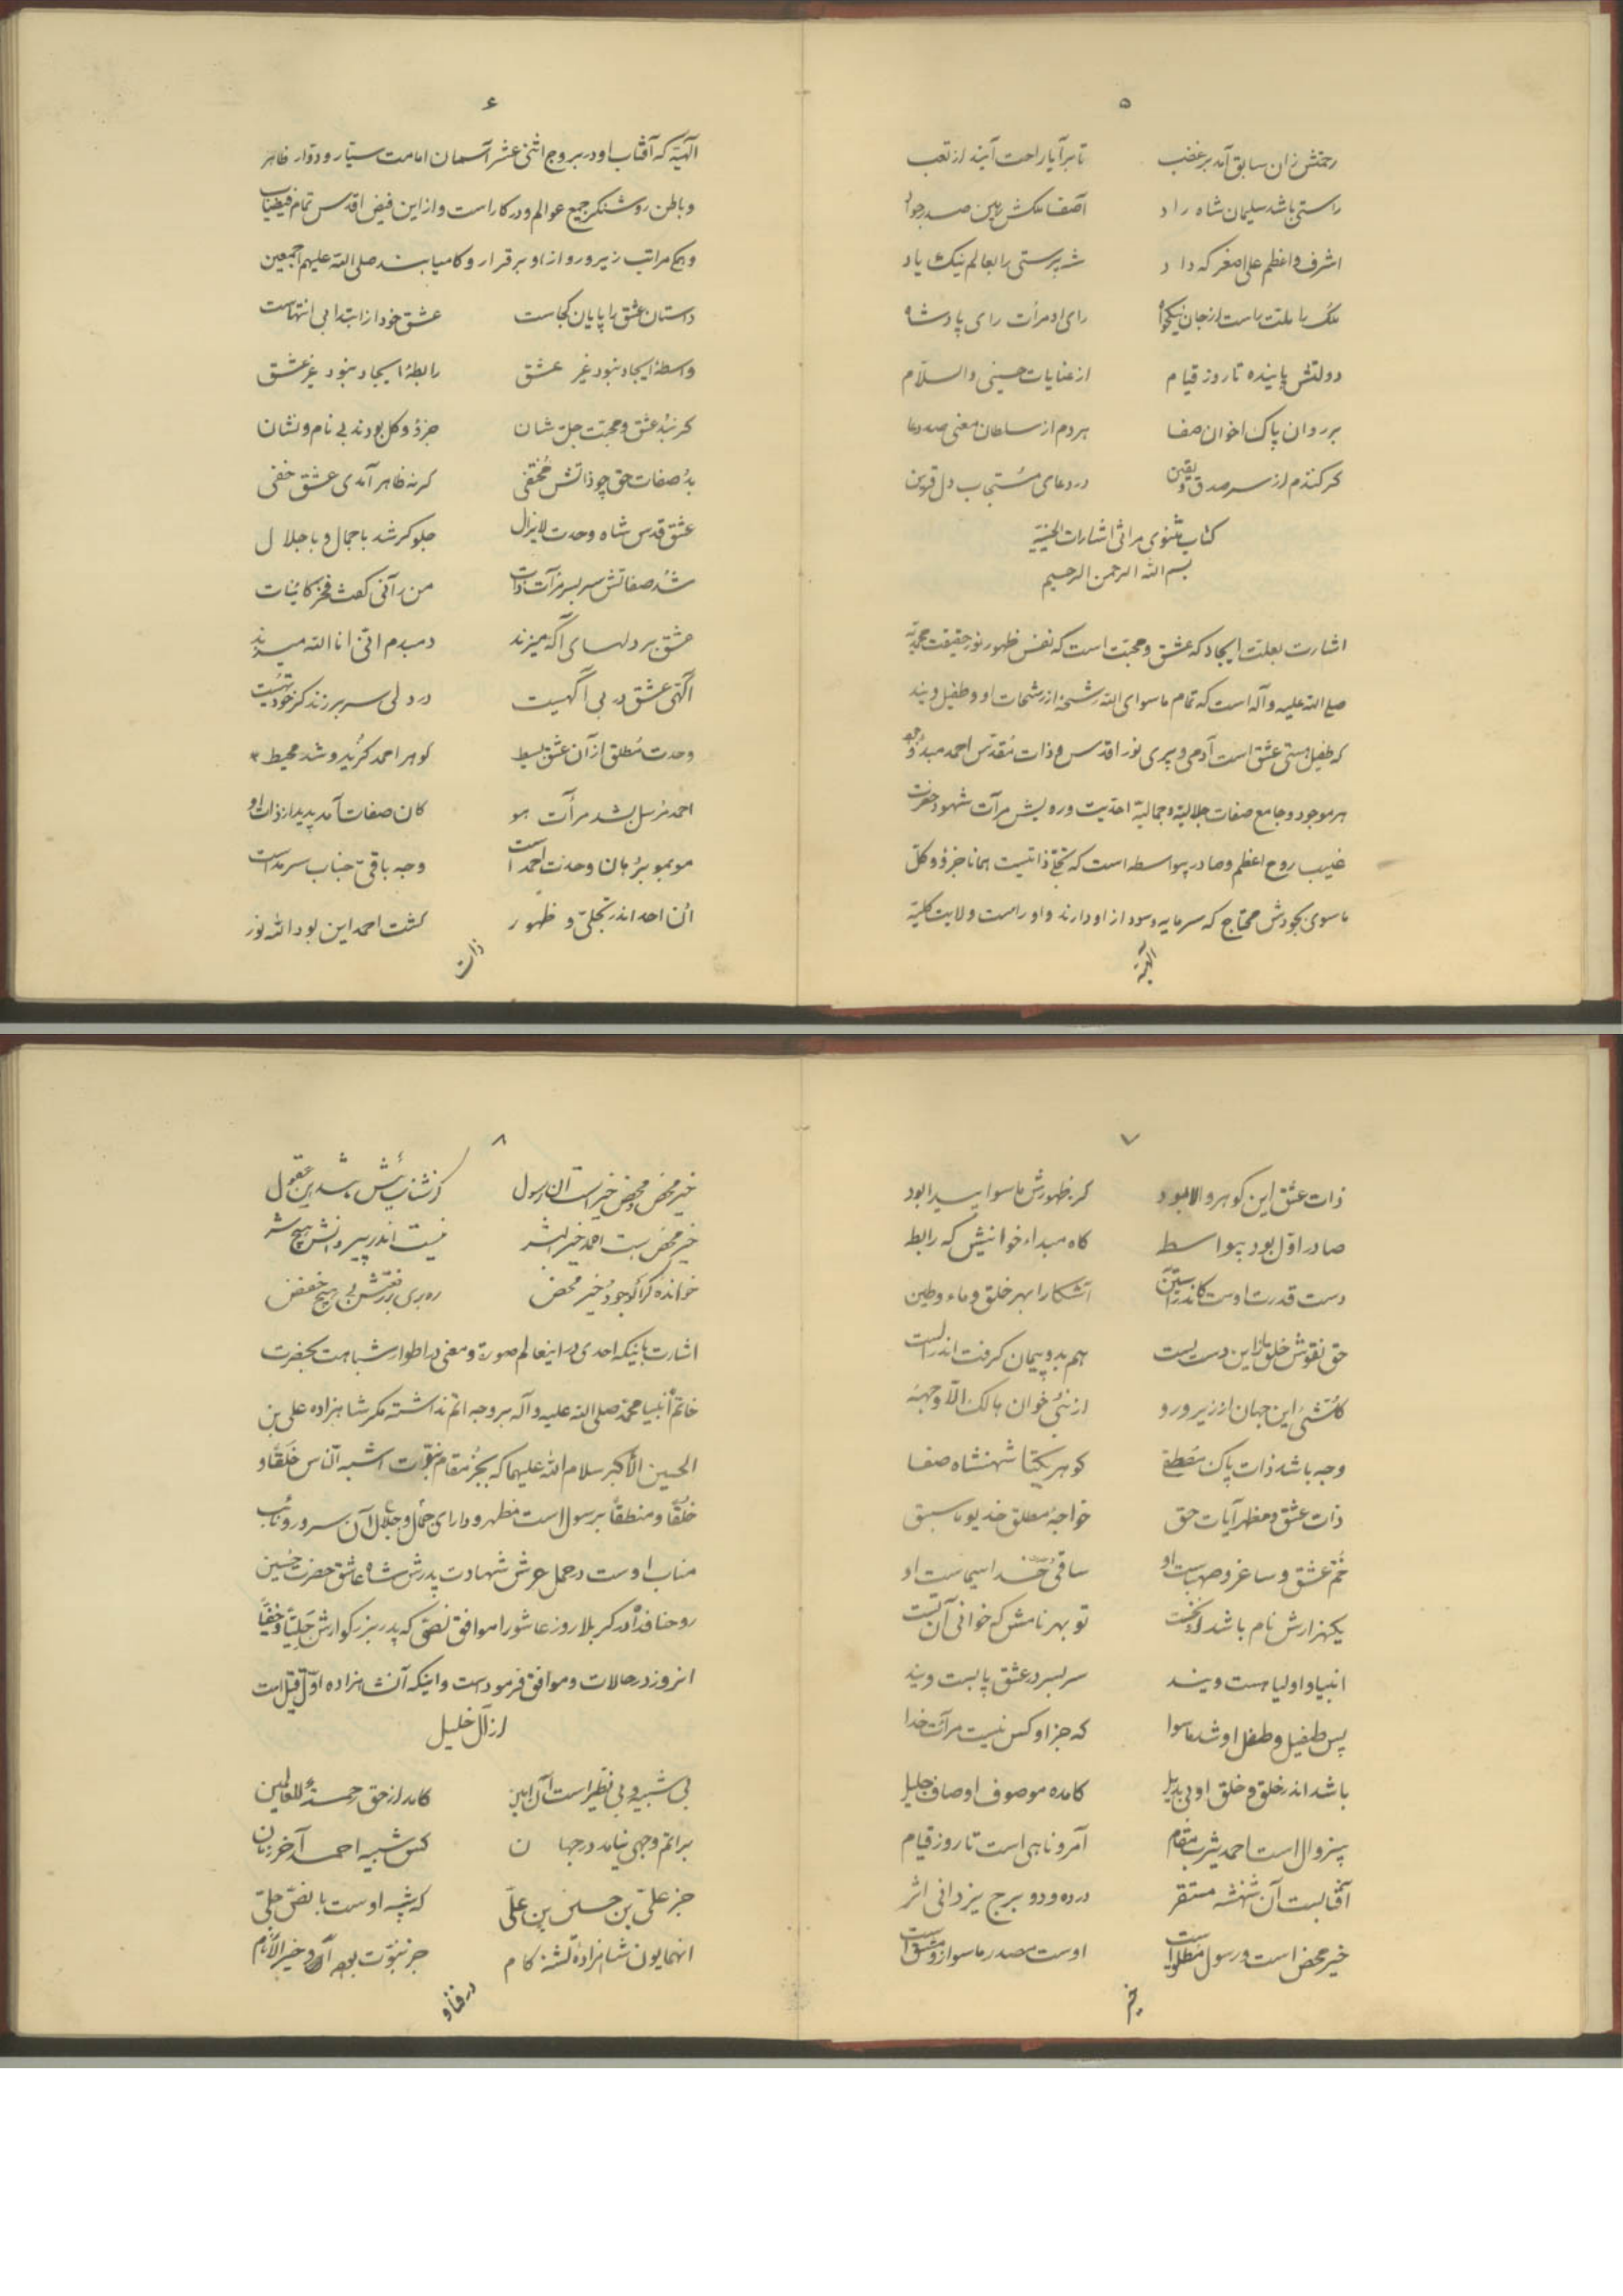 ۵
رحمتش زان سابق آمد بر غضب تا برآیا راحت آیند از تعب
راستی باشد سلیمان شاه راد آصف ملکش بین صدر جواد
اشرف و اعظم علی اصغر که داد شه پرستی را بعالم نیک یاد
ملک با ملت راست از جان نیکخواه رای او مرآت رای پادشاه
دولتش پاینده تا روز قیام از عنایات حسینی والسلام
بر روان پاک اخوان صفا هر دم از سلطان معنی صد دعا
کر کنندم از سر صدق و یقین در دعای مستجاب دل قرین
کتاب مثنوی مراثی اشارات الحسینیه
بسم الله الرحمن الرحیم
اشارت بعلت ایجاد که عشق و محبت است که نفس ظهور نور حقیقت محمدیه
صلی الله علیه و آله است که تمام ماسوای الله رشحه از رشحات او و طفیل ویند
که طفیل هستی عشق است آدمی و پری نور اقدس و ذات مقدس احمد مبدء وجود
هر موجود و جامع صفات جلالیه و جمالیه احدیت و رویش مرآت شهود حضرت
غیب روح اعظم و صادر بیواسطه است که تجلی ذاتیست همانا جزؤ و کل
ماسوی بجودش محتاج که سرمایه و سود از او دارند و او راست ولایت کلیه
الهیه
۶
الهیه که آفتاب او در بروج اثنی عشر آسمان امامت سیار و دوار ظاهر
و باطن روشنگر جمیع عوالم و در کار است و از این فیض اقدس تمام فیضیاب
و همه مراتب زیر و رو از او برقرار و کامیاب صلی الله علیهم اجمعین
داستان عشق را پایان کجاست عشق خود از ابتدا بی انتهاست
واسطهٔ ایجاد نبود غیر عشق رابطهٔ ایجاد نبود غیر عشق
کر نبد عشق و محبت جل شان جزؤ و کل بودند بی نام و نشان
بد صفات حق چو ذاتش مختفی کر نه ظاهر آمدی عشق خفی
عشق قدس شاه وحدت لایزال جلوه کر شد با جمال و با جلال
شد صفاتش سر بسر مرآت ذات من رآنی کفت فخر کائنات
عشق بر دلهای آگه میزند دمبدم انی انا الله میزند
آگهی عشق در بی آگهیست در دلی سر بر زند کز خود تهیست
وحدت مطلق از آن عشق بسیط کوهر احمد کزید و شد محیط
احمد مرسل بشد مرآت هو کان صفات آمد پدید از ذات او
موبمو برهان وحدت احمد است وجه باقی جناب سرمد است
آن احد اندر تجلی و ظهور کشت احمد این بود الله نور
ذات
۷
ذات عشق این کوهر والا بود کز ظهورش ماسوا پیدا بود
صادر اول بود بیواسطه کاه مبداء خوانیش که رابطه
دست قدرت اوست کاندر آستین آشکارا بهر خلق و ماء و طین
حق نقوش خلق را زین دست بست هم بدو پیمان کرفت اندر الست
کل شئ این جهان از زیر و رو از نبی خوان هالک الا وجهه
وجه باشد ذات پاک مصطفی کوهر یکتا شهنشاه صفا
ذات عشق و مظهر آیات حق خواجهٔ مطلق خدیو ما سبق
خم عشق و ساغر و صهباست او ساقی خدا سیماست او
یکهزارش نام باشد از نخست تو بهر نامش که خوانی آن تست
انبیا و اولیا هست ویند سر بسر در عشق پابست ویند
پس طفیل و طفل او شد ماسوا که جز او کس نیست مرآت خدا
باشد اندر خلق و خلق او بی بدیل کامده موصوف اوصاف جلیل
بیزوال است احمد یثرب مقام آمر و ناهی است تا روز قیام
آفتابست آن شهنشه مستقر در ده و دو برج یزدانی اثر
خیر محض است و رسول مطلق است اوست مصدر ماسوا زو مشتق است
خیر
۸
خیر محض و محض خیر است آن رسول
خیر محض است احمد خیر البشر نیست اندر پیروانش هیچ شر
خوانده کر او جود خیر محض
اشارت باینکه احدی در اینعالم صورة و معنی در اطوار شباهت بحضرت
خاتم انبیا محمد صلی الله علیه و آله بر وجه اتم نداشته مگر شاهزاده علی بن
الحسین الاکبر سلام الله علیهما که بجز مقام نبوت اشبه الناس خلقا و
خلقا و منطقا برسول است مظهر و دارای جمال و جلال آن سرور و نایب
مناب اوست در حمل عرش شهادت پدرش شاه عاشق حضرت حسین
روحنا فداه در کربلا روز عاشورا موافق نصی که پدر بزرکوارش جلیا و خفیا
آنروز در حالات و مواقع فرموده است و اینکه آن شاهزاده اول قتیل است
از آل خلیل
بی شبیه و بی نظیر است آن امین کامد از حق رحمة للعالمین
بر اتم وجهی نیامد در جهان کس شبیه احمد آخر زمان
جز علی بن حسین بن علی که شبیه اوست با نص جلی
آنهمایون شاهزادهٔ تشنه کام جز نبوت بود آن خیر الانام
در خلق و